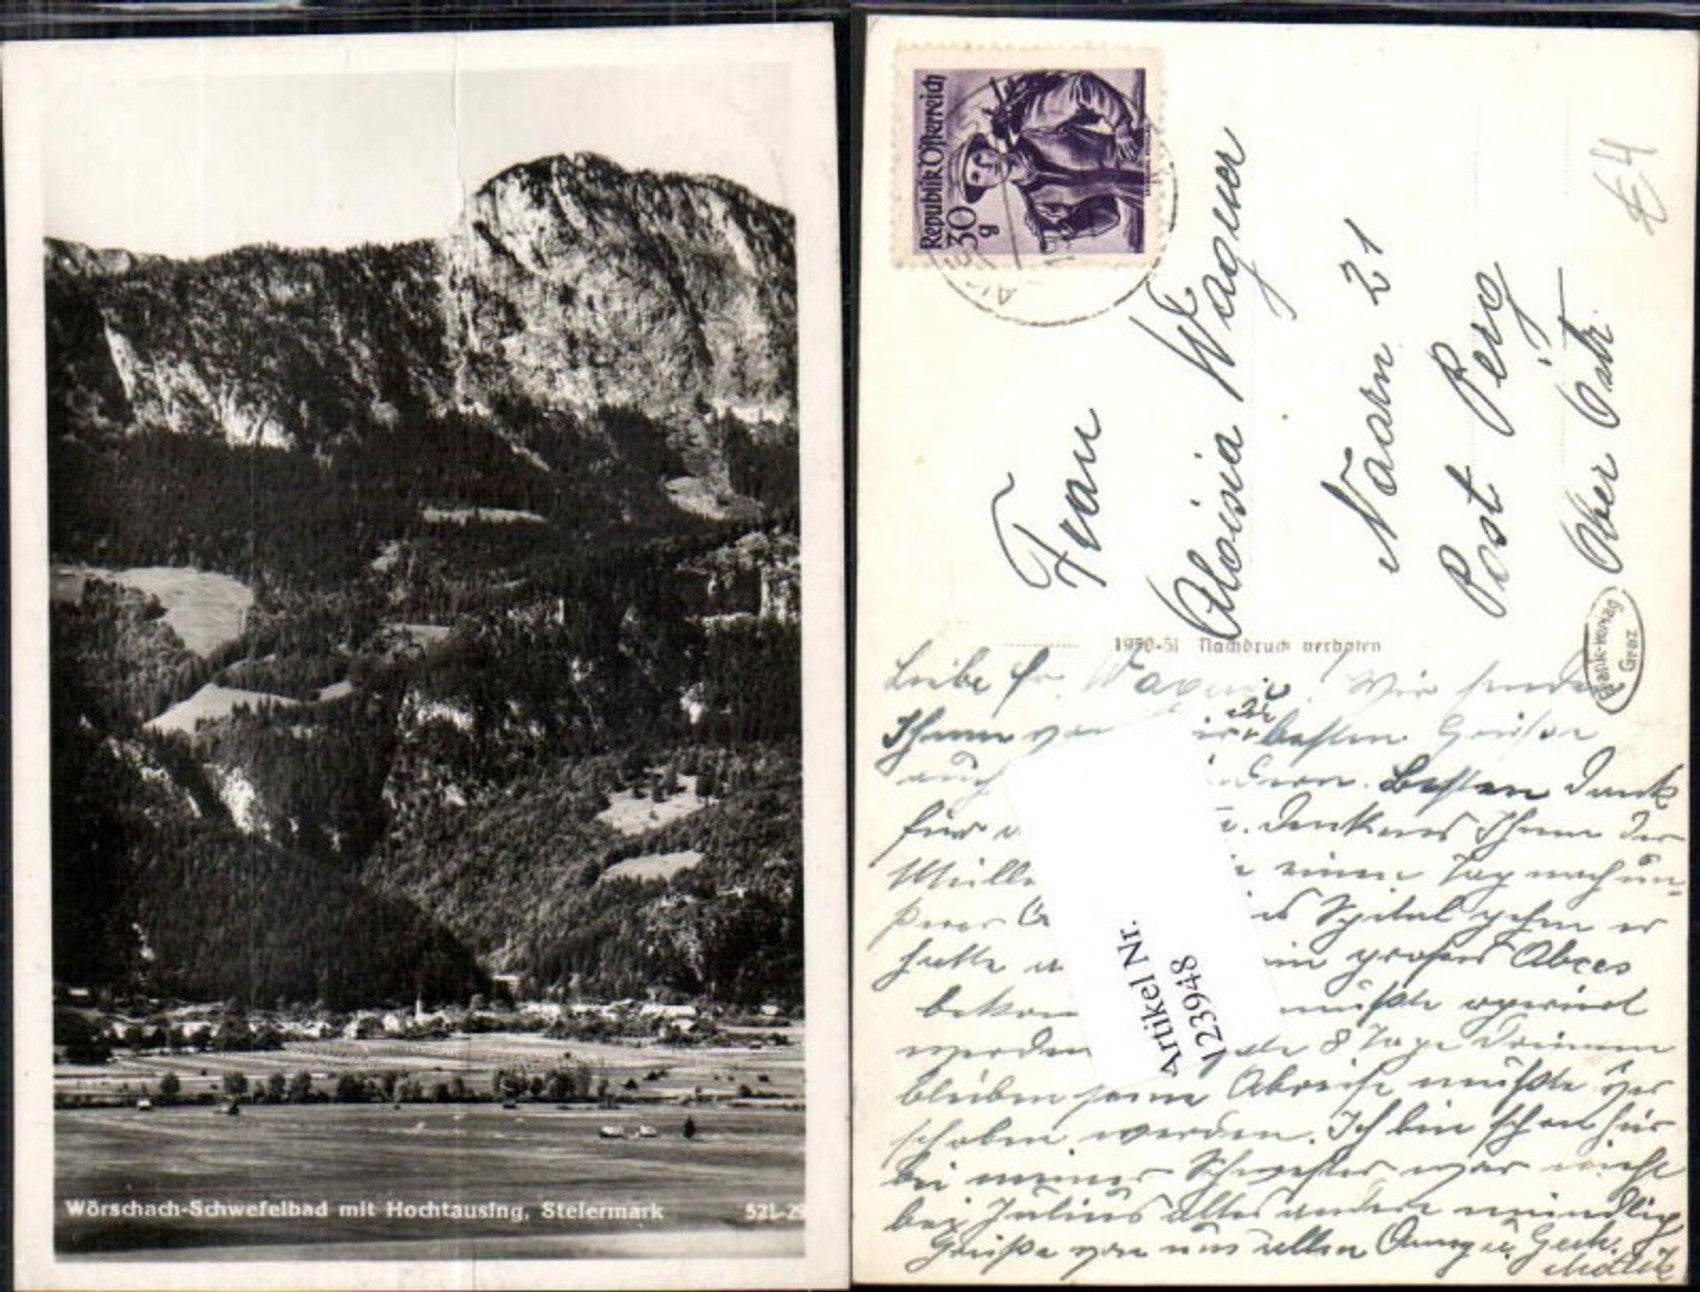 Wörschach-Schwefelbad mit Hochtausing, Steiermark 521-29
Republik Österreich
30
g
€4
Frau
Aloisia Wagner
Naarn 21
Post Perg
Ober Östr.
1950-51 Nachdruck verboten
Frank-Verlag
Graz
Artikel Nr.
123948
Liebe Fr. Wagner! Wir senden
Ihnen von hier die besten Grüße
auch Besten Dank
für Ihnen der
einen Tag nach un-
serer Spital gehen er
hatte ein großes Abces
bekom mußte operiert
werden 8 Tage drinnen
bleiben seine Abreise mußte ver
schoben werden. Ich bin schon hier
bei meiner Schwester war nicht
bei Julius alles andere mündlich
Grüße von uns allen